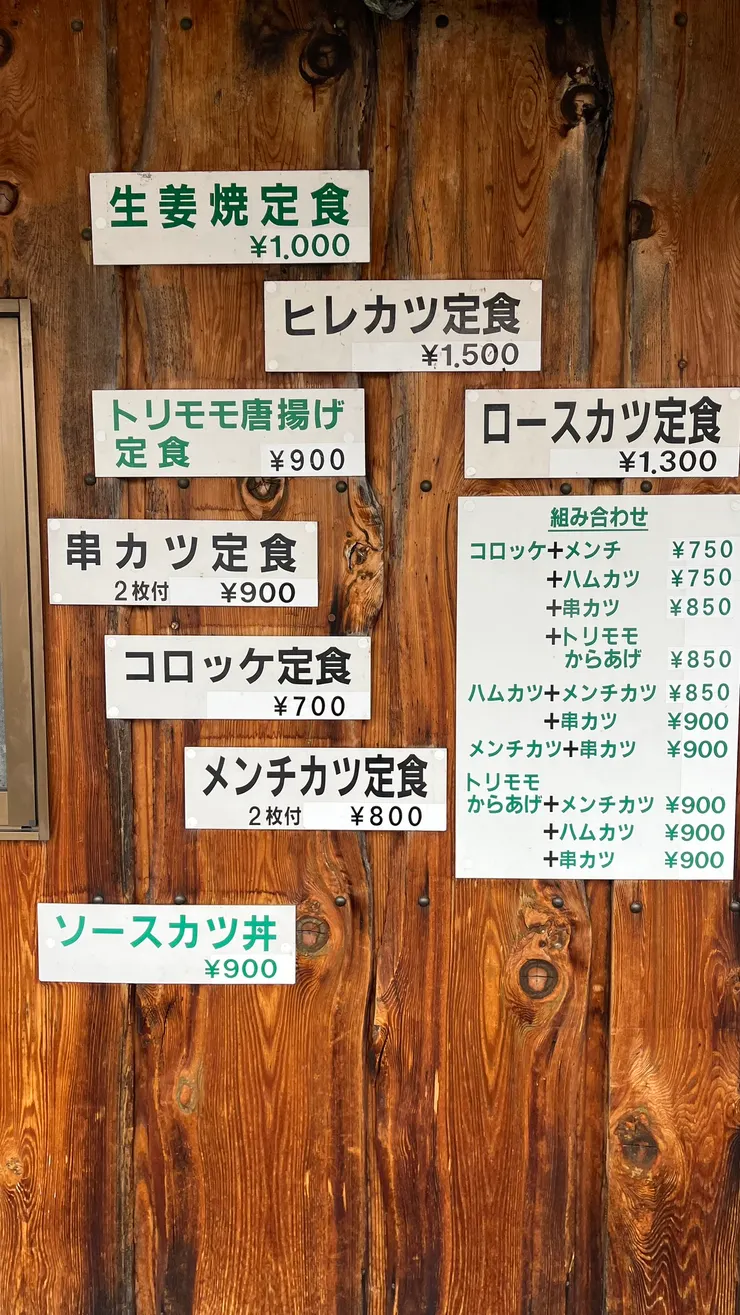 生姜焼定食
¥1.000
ヒレカツ定食
¥1.500
トリモモ唐揚げ
定食 ¥900
ロースカツ定食
¥1.300
串カツ定食
2枚付 ¥900
コロッケ定食
¥700
メンチカツ定食
2枚付 ¥800
ソースカツ丼
¥900
組み合わせ
コロッケ+メンチ ¥750
+ハムカツ ¥750
+串カツ ¥850
+トリモモ
からあげ ¥850
ハムカツ+メンチカツ ¥850
+串カツ ¥900
メンチカツ+串カツ ¥900
トリモモ
からあげ+メンチカツ ¥900
+ハムカツ ¥900
+串カツ ¥900